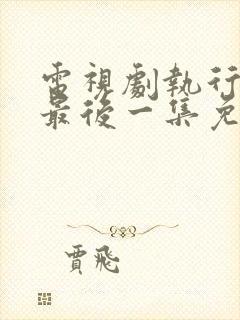 電視劇執行
最後一集免
賈飛